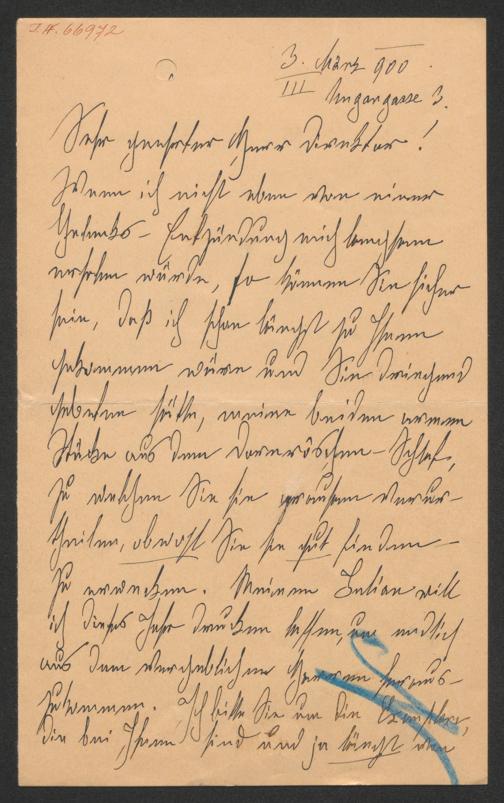 I.N. 66972
3. März 900.
III Ungargasse 3.
Sehr geehrter Herr Direktor!
Wenn ich nicht eben von einer
Gelenks-Entzündung mich langsam
erholen würde, so können Sie sicher
sein, daß ich schon längst zu Ihnen
gekommen wäre und Sie dringend
gebeten hätte, meine beiden armen
Stücke aus dem Dornröschen-Schlaf,
zu welchem Sie sie grausam verur-
theilen, obwohl Sie sie gut finden –
zu erwecken. Meinen Julian will
ich dieses Jahr drucken lassen, um endlich
aus dem vergeblichen Harren heraus-
zukommen. Ich bitte Sie um die Exemplare,
die bei Ihnen sind und ja längst von